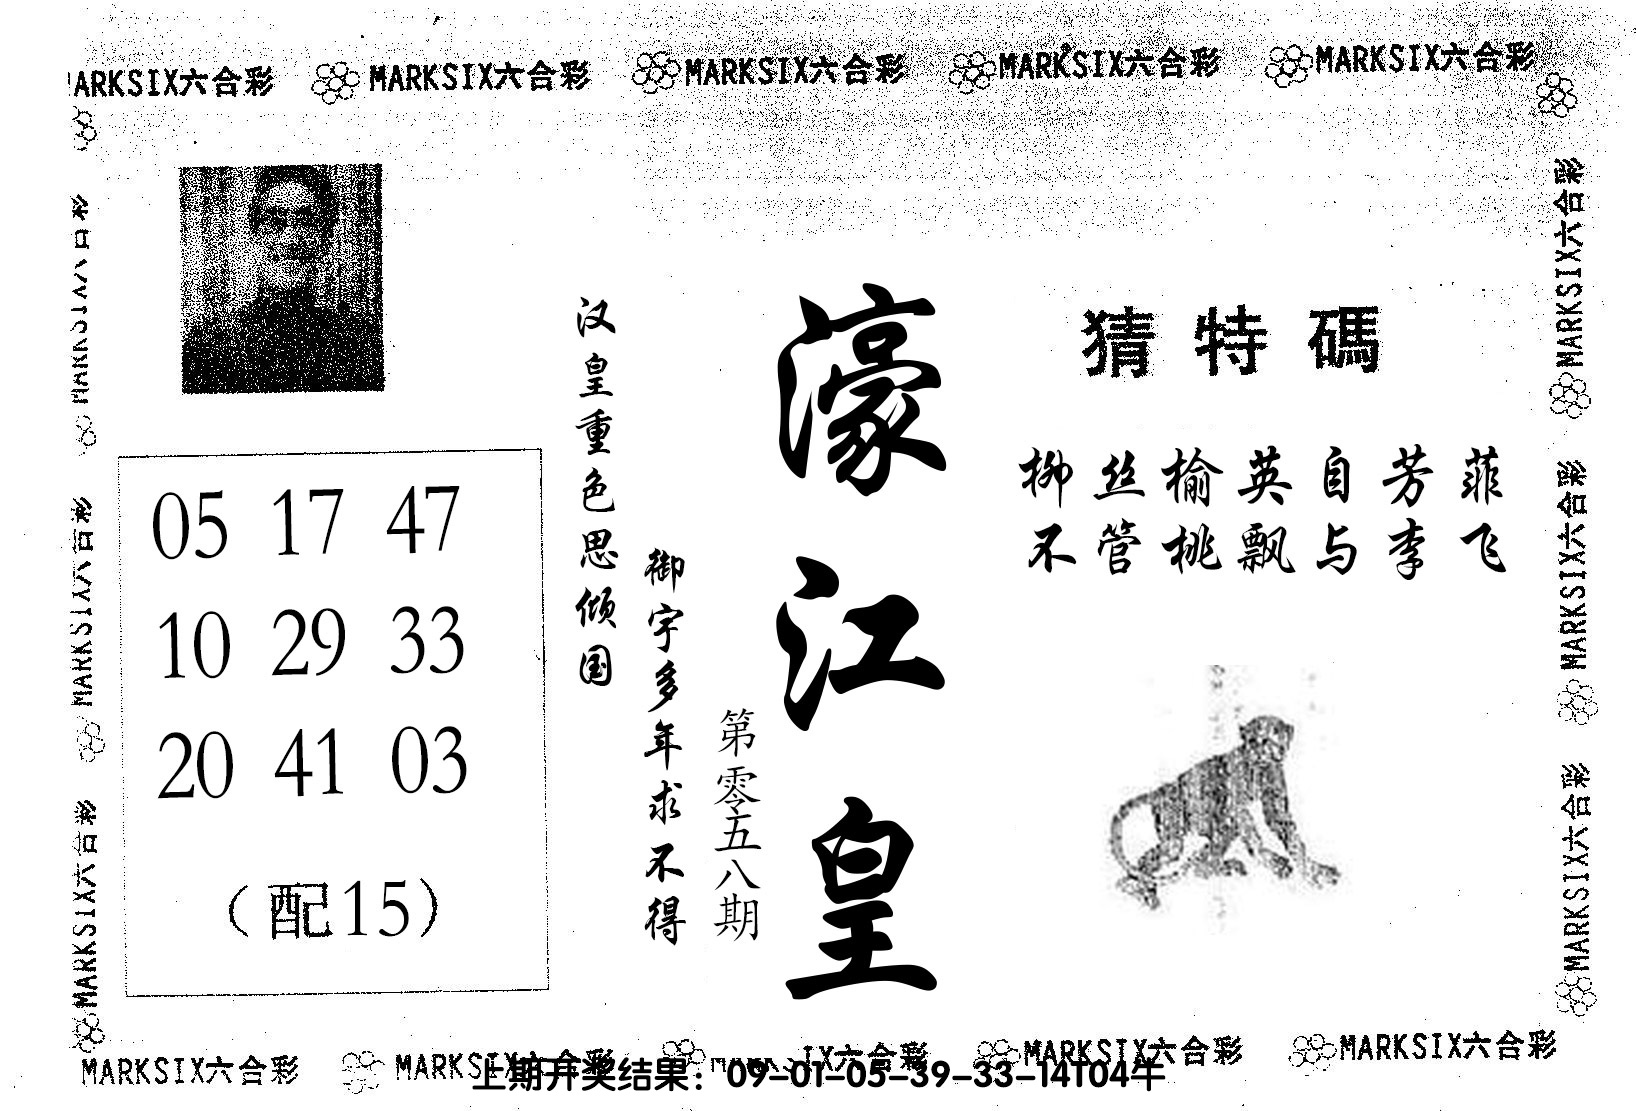 MARKSIX六合彩 MARKSIX六合彩 MARKSIX六合彩 MARKSIX六合彩
ARKSIX六合彩
猜特碼
柳丝榆英自芳菲
不管桃飘与李飞
濠江皇
第零五八期
汉皇重色思倾国
御宇多年求不得
05 17 47
10 29 33
20 41 03
（配15）
MARKSIX六合彩
MARKSIX六合彩
MARKSIX六合彩
MARKSIX六合彩
MARKSIX六合彩
MARKSIX六合彩
MARKSIX六合彩 MARKSIX六合彩 IX六合彩 MARKSIX六合彩 MARKSIX六合彩
上期开奖结果：09-01-05-39-33-14T04牛